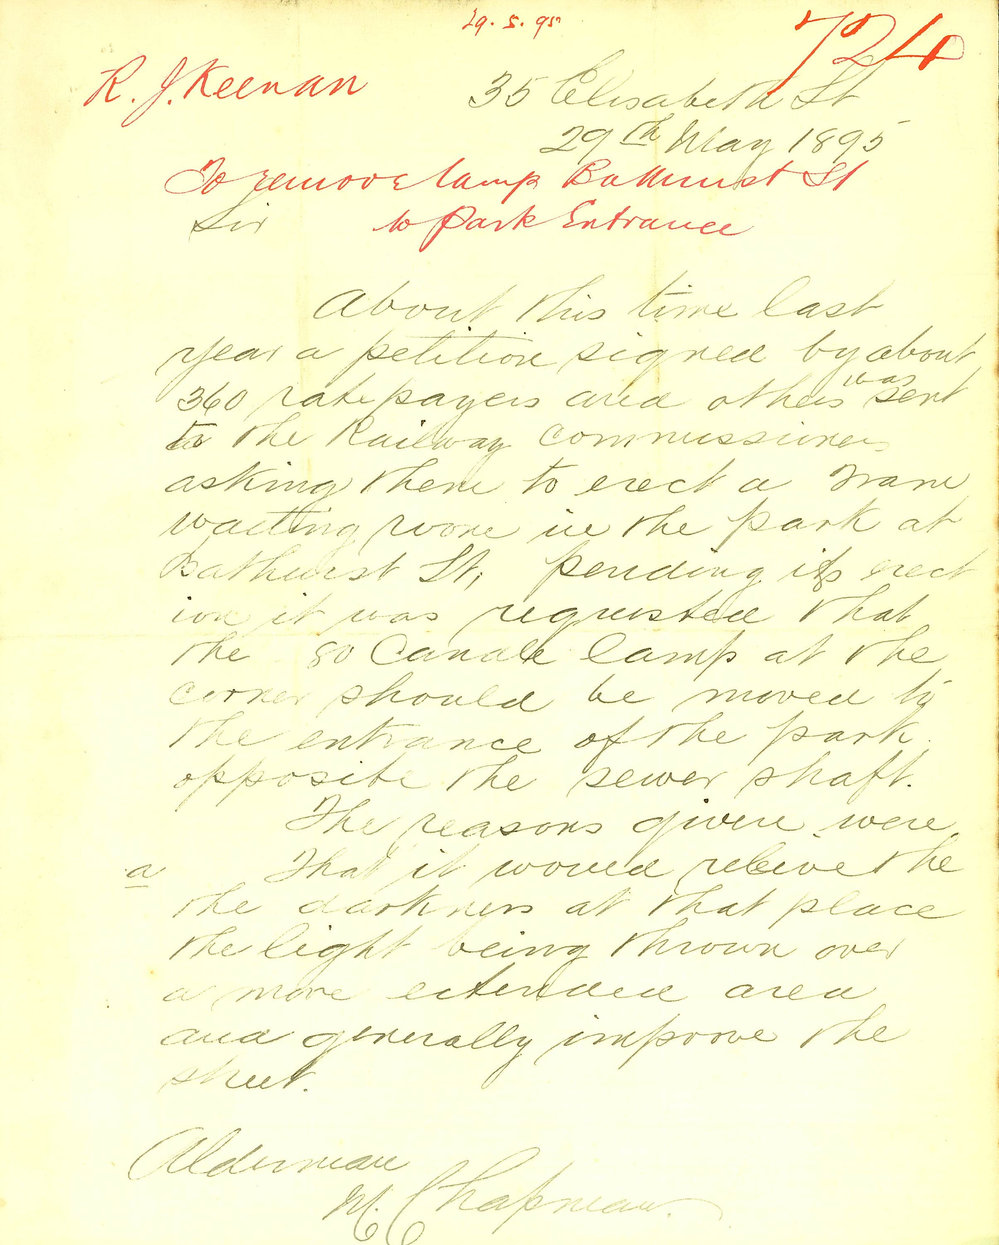 29.5.95
724
R. J. Keenan
35 Elisabeth St
29th May 1895
To remove lamp Bathurst St
Sir
to Park Entrance
About this time last
year a petition signed by about
360 ratepayers and others was sent
to the Railway Commissioners
asking them to erect a Tram
waiting room in the park at
Bathurst St, pending its erect
ion it was requested that
the 80 Candle lamp at the
corner should be moved to
the entrance of the park
opposite the sewer shaft.
The reasons given were
a That it would relieve the
the darkness at that place
the light being thrown over
a more extended area
and generally improve the
street.
Alderman
M. Chapman.